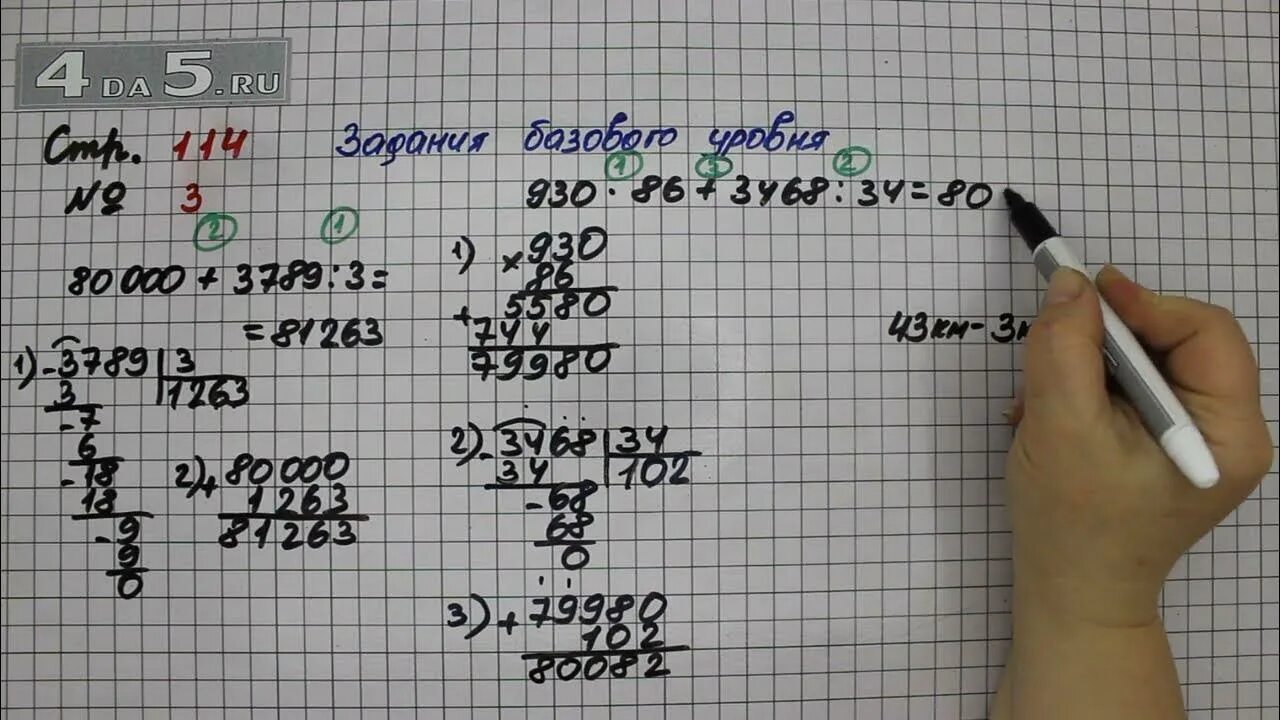 4DA5.RU
Стр. 114 Задания базового уровня
№ 3
930 · 86 + 3468 : 34 = 80
1 3 2
2 1
80 000 + 3789 : 3 =
= 81263
1) - 3789 | 3
3 1263
- 7
6
- 18
18
- 9
9
0
2) + 80 000
1263
81263
1) × 930
86
+ 5580
744
79980
2) - 3468 | 34
34 102
- 68
68
0
3) + 79980
102
80082
43км - 3